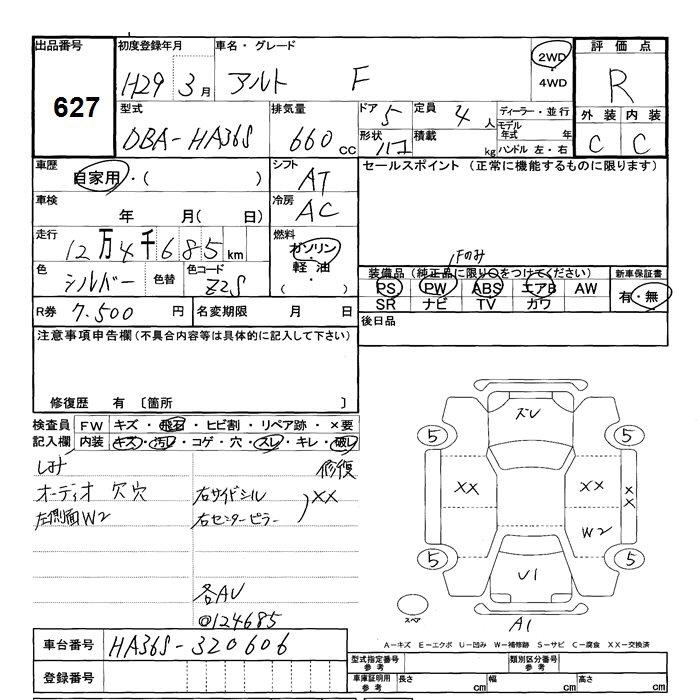 出品番号 初度登録年月 車名・グレード 2WD 評価点
627 H29 3月 アルト F 4WD R
型式 排気量 ドア 5 定員 4人 ディーラー・並行 外装 内装
DBA-HA36S 660cc 形状 ハコ 積載 kg モデル年式 年 C C
ハンドル 左・右
車歴 自家用・( ) シフト AT セールスポイント (正常に機能するものに限ります)
車検 年 月( 日) 冷房 AC
走行 12万4千685km 燃料 ガソリン・軽油・( )
Fのみ
色 シルバー 色替 色コード Z2S 装備品 (純正品に限り○をつけてください) 新車保証書
PS PW ABS エアB AW 有・無
SR ナビ TV カワ
R券 7.500円 名変期限 月 日 後日品
注意事項申告欄(不具合内容等は具体的に記入して下さい)
修復歴 有 〔箇所 〕
検査員 FW キズ・飛石・ヒビ割・リペア跡・×要
記入欄 内装 キズ・汚レ・コゲ・穴・スレ・キレ・破レ
しみ 修復
オーディオ欠穴 右サイドシル XX
左側面W2 右センターピラー
各AU
@124685
ズレ
5 5
XX XX XX
W2
5 5
U1
スペア A1
A-キズ E-エクボ U-凹み W-補修跡 S-サビ C-腐食 XX-交換済
車台番号 HA36S-320606
型式指定番号 参考 類別区分番号 参考
登録番号 車庫証明用 参考 長さ cm 幅 cm 高さ cm